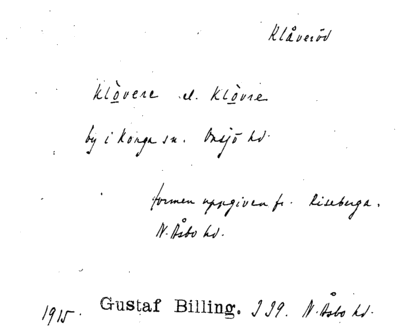 Klåveröd
Klòvere el. Klòvre
by i Konga sn. Onsjö hd.
formen uppgiven fr. Riseberga,
N. Åsbo hd.
1915. Gustaf Billing. I 39. N. Åsbo hd.